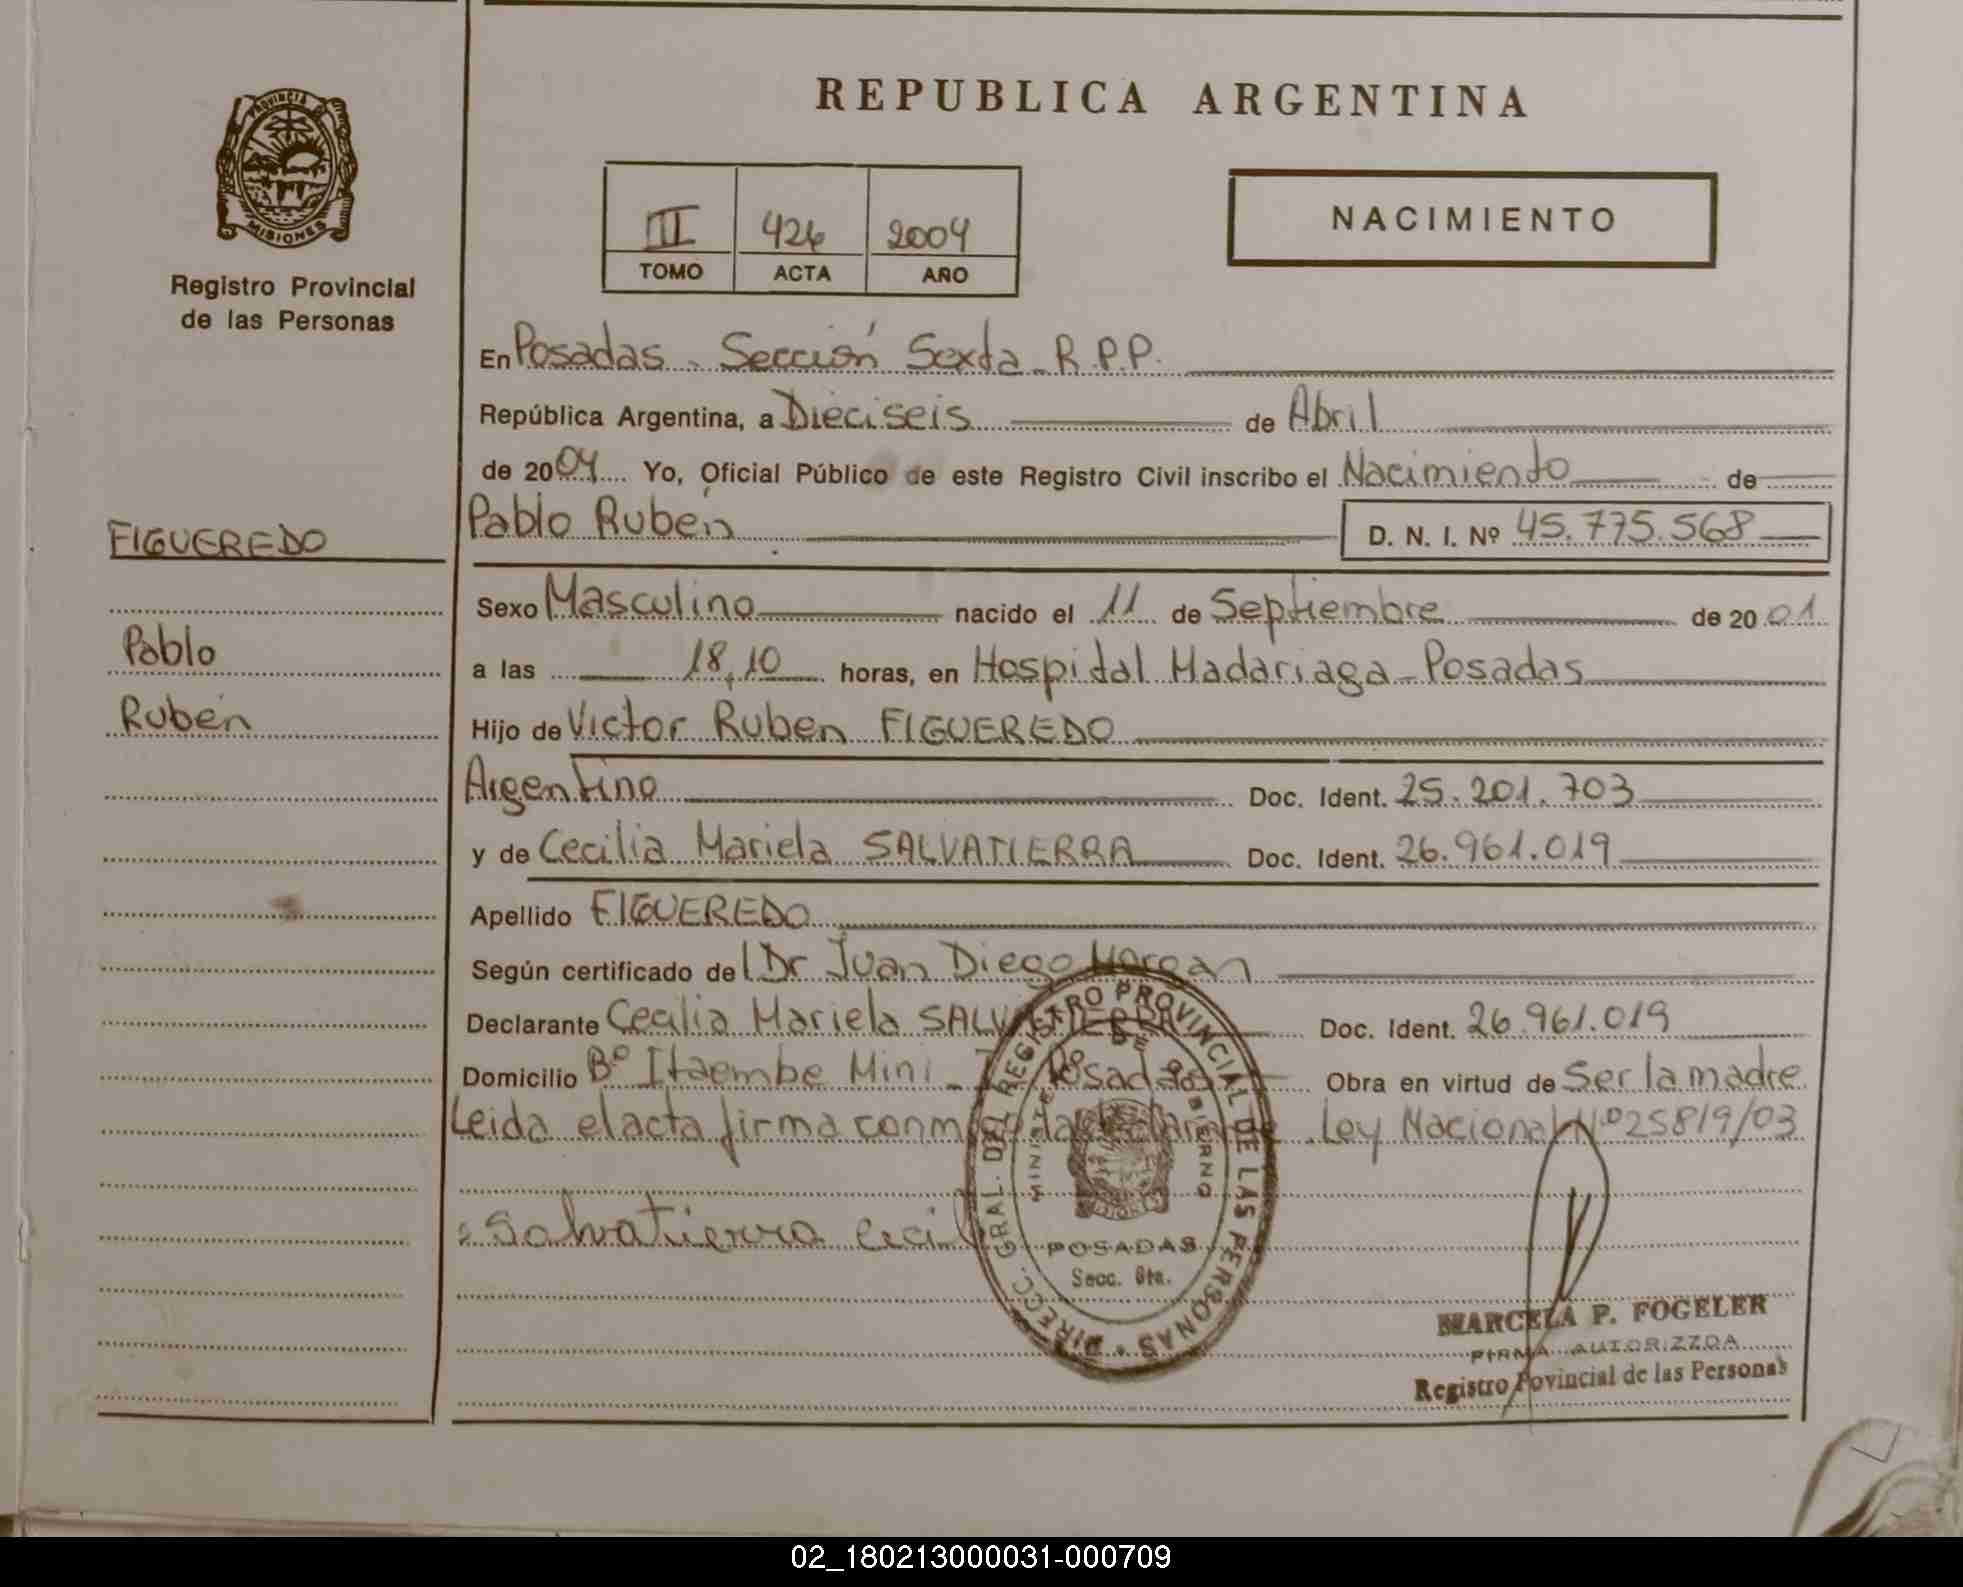 PROVINCIA DE
MISIONES
Registro Provincial
de las Personas
FIGUEREDO
Pablo
Rubén
REPUBLICA ARGENTINA
III 426 2004
TOMO ACTA AÑO
NACIMIENTO
En Posadas - Sección Sexta - R.P.P.
República Argentina, a Dieciseis de Abril
de 2004 Yo, Oficial Público de este Registro Civil inscribo el Nacimiento de
Pablo Rubén D. N. I. Nº 45.775.568
Sexo Masculino nacido el 11 de Septiembre de 2001
a las 18,10 horas, en Hospital Madariaga - Posadas
Hijo de Victor Ruben FIGUEREDO
Argentino Doc. Ident. 25.201.703
y de Cecilia Mariela SALVATIERRA Doc. Ident. 26.961.019
Apellido FIGUEREDO
Según certificado del Dr Juan Diego Morgan
Declarante Cecilia Mariela SALVATIERRA Doc. Ident. 26.961.019
Domicilio Bº Itaembe Mini - Posadas Obra en virtud de Ser la madre
Leida el acta firma conmigo la declarante Ley Nacional Nº 25819/03
Salvatierra Cecil
DIRECC. GRAL. DEL REGISTRO PROVINCIAL DE LAS PERSONAS
MINISTE DE GOBIERNO
POSADAS
Secc. 6ta.
MARCELA P. FOGELER
FIRMA AUTORIZZDA
Registro Povincial de las Personas
02_180213000031-000709